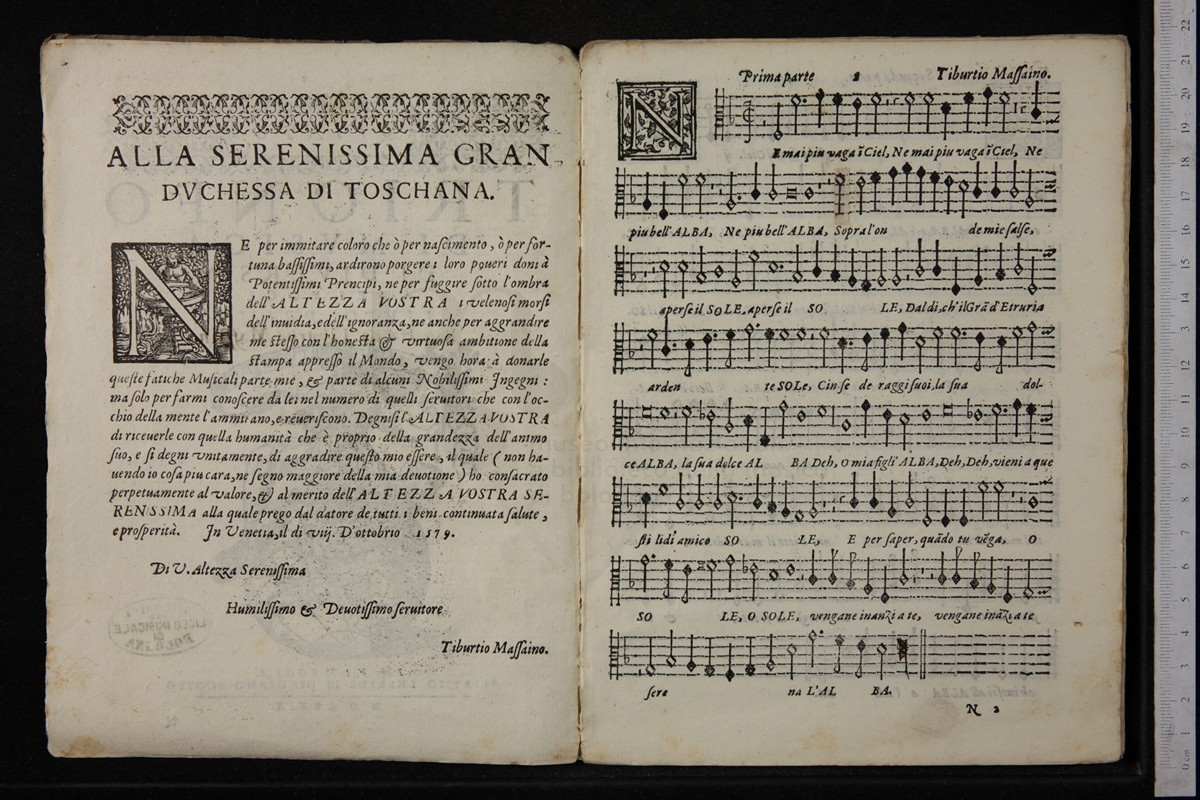 ALLA SERENISSIMA GRAN-
DVCHESSA DI TOSCHANA.
NE per immitare coloro che ò per nascimento, ò per for-
tuna bassissimi, ardirono porgere i loro poueri doni à
Potentissimi Prencipi, ne per fuggire sotto l'ombra
dell'ALTEZZA VOSTRA i velenosi morsi
dell'inuidia, e dell'ignoranza, ne anche per aggrandire
me stesso con l'honesta & virtuosa ambitione della
stampa appresso il Mondo, vengo hora à donarle
queste fatiche Musicali parte mie, & parte di alcuni Nobilissimi Ingegni:
ma solo per farmi conoscere da lei nel numero di quelli seruitori che con l'oc-
chio della mente l'ammirano, e reueriscono. Degnisi l'ALTEZZA VOSTRA
di riceuerle con quella humanità che è proprio della grandezza dell'animo
suo, e si degni vnitamente, di aggradire questo mio essere, il quale (non ha-
uendo io cosa piu cara, ne segno maggiore della mia deuotione) ho consacrato
perpetuamente al valore, & al merito dell'ALTEZZA VOSTRA SE-
RENISSIMA alla quale prego dal datore de tutti i beni continuata salute,
e prosperità. In Venetia, il di viij. D'ottobrio 1579.
Di V. Altezza Serenissima
Humilissimo & Deuotissimo seruitore
Tiburtio Massaino.
LICEO MUSICALE
DI
BOLOGNA
Prima parte 1 Tiburtio Massaino.
NE mai piu vaga ĩ Ciel, Ne mai piu vaga ĩ Ciel, Ne
piu bell'ALBA, Ne piu bell'ALBA, Sopra l'on de mie salse,
aperse il SOLE, aperse il SO LE, Dal di, ch'il Grã d'Etruria
arden te SOLe, Cinse de raggi suoi, la sua dol-
ce ALBA, la sua dolce AL BA Deh, O mia figli'ALBA, Deh, Deh, vieni a que
sti lidi amico SO LE, E per saper, quãdo tu vẽga, O
SO LE, O SOLE, vengane inanzi a te, vengane inãzi a te
sere na L'AL BA.
N 2